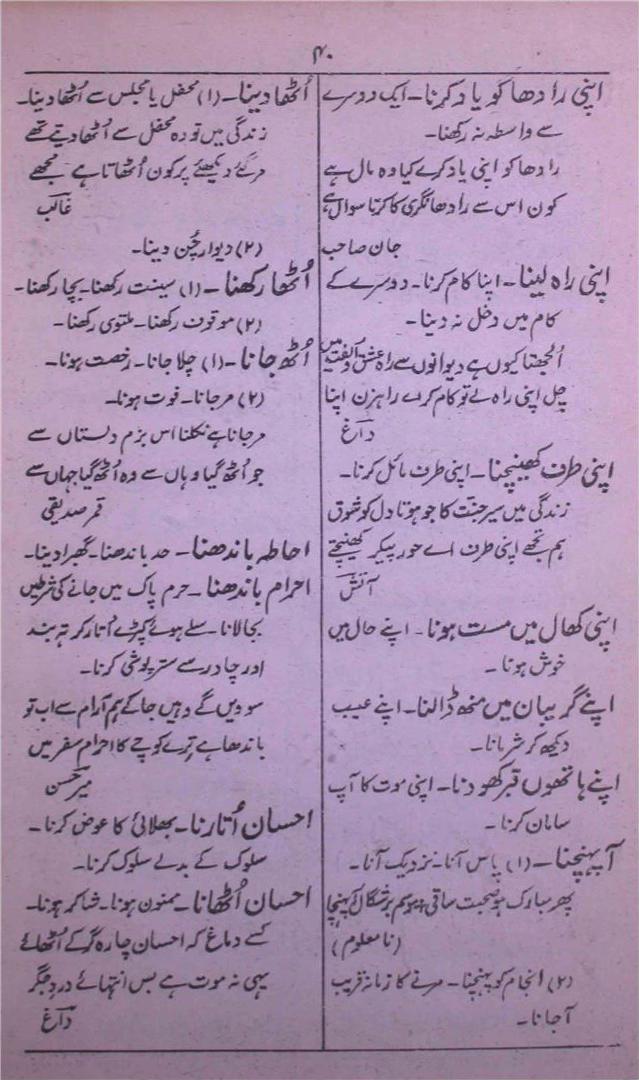 ۴۰
اپنی رادھا کو یاد کرنا۔ ایک دوسرے
سے واسطہ نہ رکھنا۔
رادھا کو اپنی یاد کرے کیا وہ مال ہے
کون اس سے رادھا نگری کا کرتا سوال ہے
جان صاحب
اپنی راہ لینا۔ اپنا کام کرنا۔ دوسرے کے
کام میں دخل نہ دینا۔
اُلجھتا کیوں ہے دیوانوں سے راہ عشق و اُلفت میں
چل اپنی راہ لے تو کام کر اے راہزن اپنا
داغ
اپنی طرف کھینچنا۔ اپنی طرف مائل کرنا۔
زندگی میں سیر جنت کا جو ہوتا دل کو شوق
ہم تجھے اپنی طرف اے حور پیکر کھینچتے
آتش
اپنی کھال میں مست ہونا۔ اپنے حال میں
خوش ہونا۔
اپنے گریبان میں منھ ڈالنا۔ اپنے عیب
دیکھ کر شرمانا۔
اپنے ہاتھوں قبر کھودنا۔ اپنی موت کا آپ
سامان کرنا۔
آپہنچنا۔ (۱) پاس آنا۔ نزدیک آنا۔
پھر مبارک ہو صحبت ساقی موسم برشگال آپہنچا
(نامعلوم)
(۲) انجام کو پہنچنا۔ مرنے کا زمانہ قریب
آجانا۔
اُٹھا دینا۔ (۱) محفل یا مجلس سے اُٹھا دینا۔
زندگی میں تو وہ محفل سے اُٹھا دیتے تھے
مر گئے دیکھئے پر کون اُٹھاتا ہے مجھے
غالب
(۲) دیوار چُن دینا۔
اُٹھا رکھنا۔ (۱) سینت رکھنا۔ بچا رکھنا۔
(۲) موقوف رکھنا۔ ملتوی رکھنا۔
اُٹھ جانا۔ (۱) چلا جانا۔ رخصت ہونا۔
(۲) مرجانا۔ فوت ہونا۔
مرجانا ہے نکلنا اس بزم دلستاں سے
جو اُٹھ گیا وہاں سے وہ اُٹھ گیا جہاں سے
قمر صدیقی
احاطہ باندھنا۔ حد باندھنا۔ گھیرا دینا۔
احرام باندھنا۔ حرم پاک میں جانے کی شرطیں
بجالانا۔ سلے ہوئے کپڑے اُتار کر تہ بند
اور چادر سے ستر پوشی کرنا۔
سوویں گے وہیں جاکے ہم آرام سے اب تو
باندھا ہے ترے کوچے کا احرام سفر میں
میر حسن
احسان اُتارنا۔ بھلائی کا عوض کرنا۔
سلوک کے بدلے سلوک کرنا۔
احسان اُٹھانا۔ ممنون ہونا۔ شاکر ہونا۔
کسے دماغ کہ احسان چارہ گر کے اُٹھائے
یہی نہ موت ہے بس انتہائے درد جگر
داغ